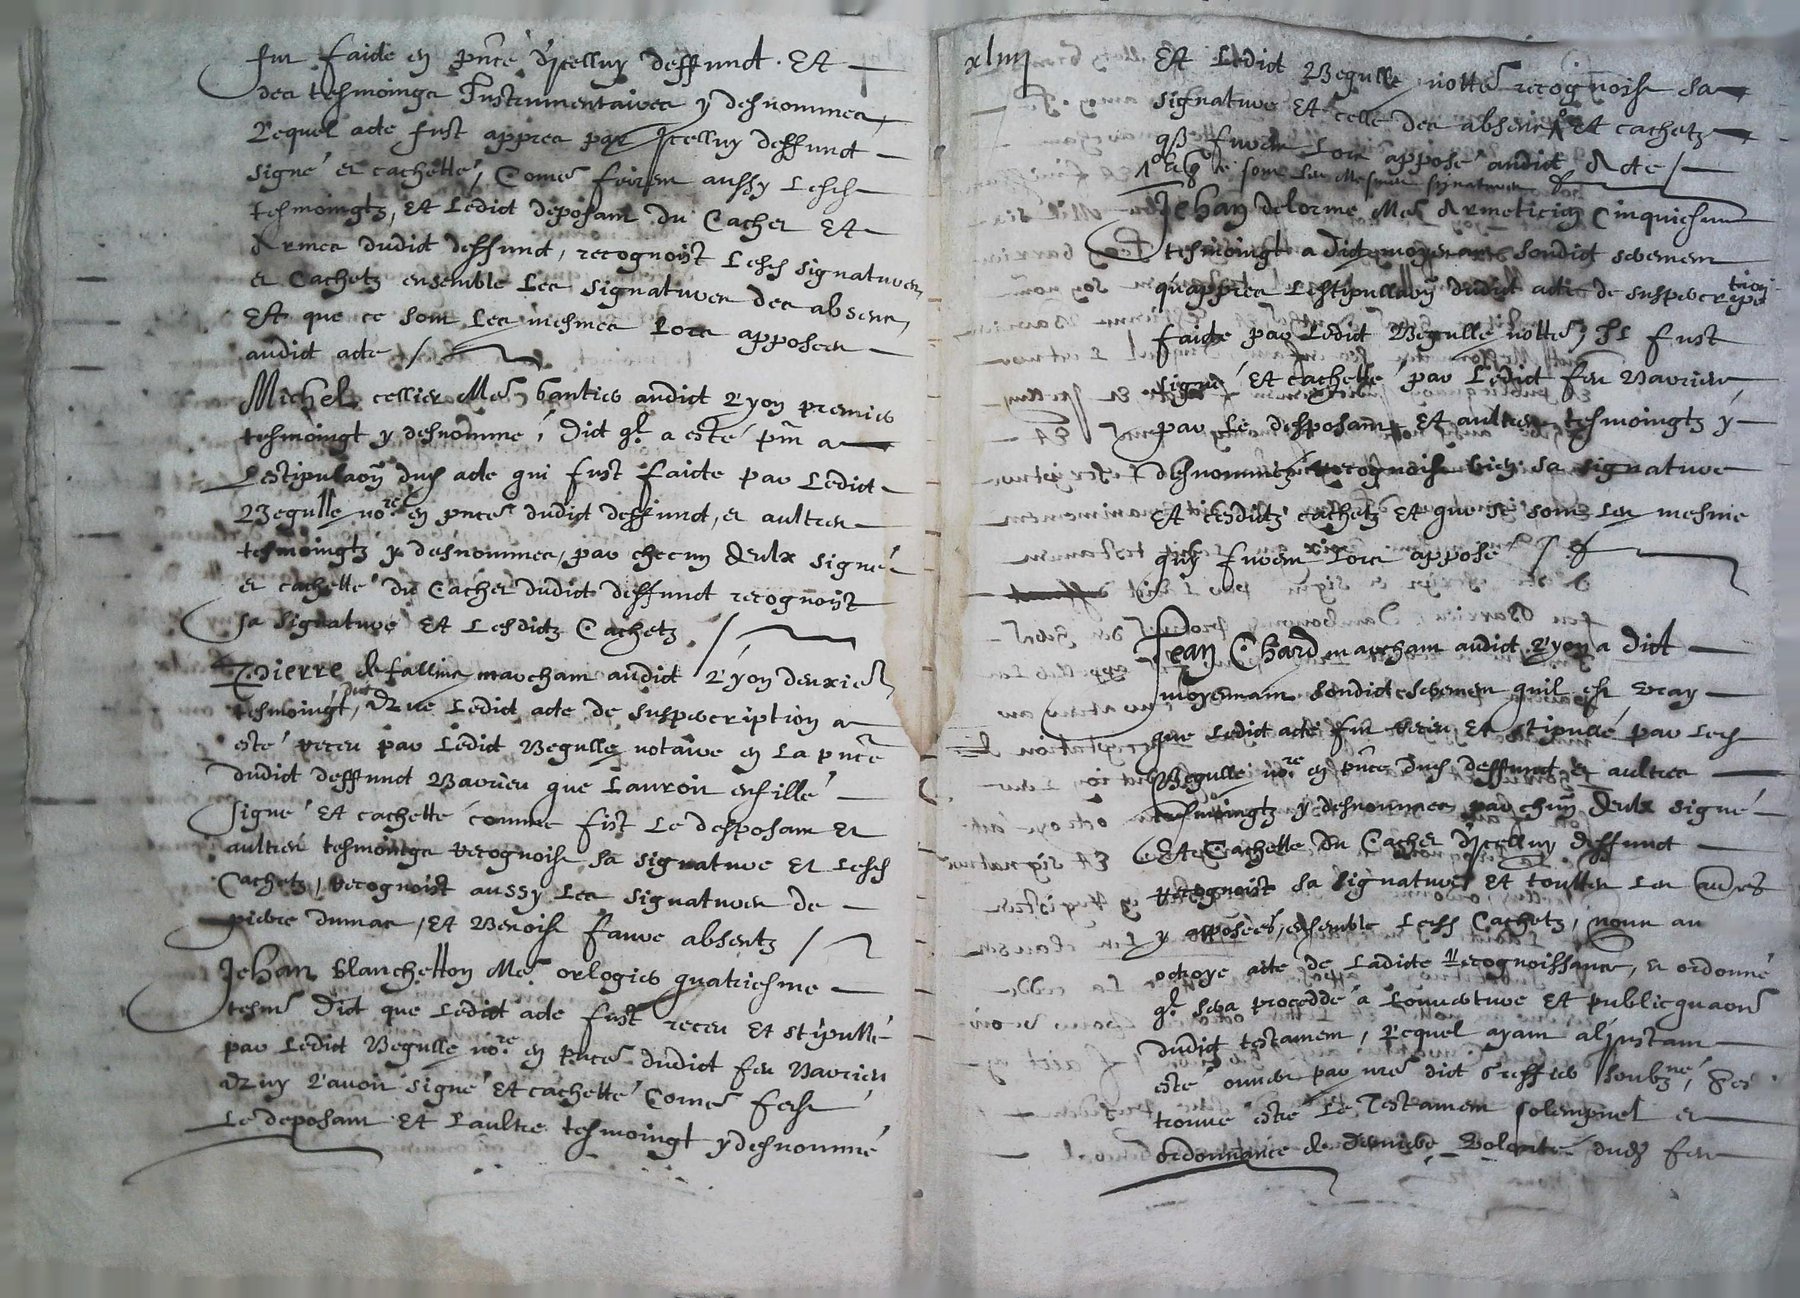 fut faicte en pnce d'icelluy deffunct. Et
des tesmoings Instrumentaires y desnommes,
Lequel acte fust appres par Icelluy deffunct
signé et cachetté, Come feirent aussy lesds
tesmoingtz, Et Ledict deposant du Cachet Et
Armes dudict deffunct, recognoist Lesds signatures
et Cachetz ensemble Les signatures des absens,
Et que ce sont Les mesmes Lors apposees
audict acte /
Michel cellier Me bantier audict Lyon premier
tesmoingt y desnommé, Dict ql a esté pnt a
Lestipulaon duds acte qui fust faicte par Ledict
Begulle nore en pnce dudict deffunct, et aultres
tesmoingtz y desnommes, par checun deulx signé
et cachetté du Cachet dudict deffunct recognoist
sa signature Et Lesdictz Cachetz /
Pierre de fallina marchant audict Lyon deuxie
tesmoingt, dict Que Ledict acte de suspscription a
esté receu par Ledict Begulle notaire en La pnce
dudict deffunct Barrieu que Lauroit ensillé
signé Et cachetté comme fist Le desposant Et
aultres tesmoings recognoist sa signature Et Lesds
Cachetz, recognoist aussy Les signatures de
pierre dumas, Et Benoist faure absentz /
Jehan blanchetton Me orlogier quatriesme
tesm Dict que Ledict acte fust receu Et stipullé
par Ledict Begulle nore en pnce dudict feu Barrieu
Quy L'avoit signé Et cachetté Come feist
Le deposant Et Laultre tesmoingt y desnommé
xliiij
Et Ledict Begulle notte recognoist sa
signature Et celle des absens Et cachetz
qui furent Lors apposé audict Acte /
et que ce sont Les Mesmes signatures
Jehan delorme Me Armeticien Cinquiesme
tesmoingt a Dict moyenant sondict serement
qu'appres Lestipullaon dudict acte de suspscription
faicte par Ledict Begulle notte, Il fust
signé Et cachetté par Ledict feu Barrieu
par Le desposant Et aultres tesmoingtz y
desnommés recognoist bien sa signature
Et cesdictz cachetz Et que se sont Les mesme
quy furent Lors apposé /
Jean Chard marchant audict Lyon a dict
moyennant sondict serement quil est vray
que Ledict acte fut receu Et stipullé par Leds
Begulle nore en pnce duds deffunct et aultres
tesmoingtz y desnommes par chun deulx signé
Et Cachetté du Cachet d'icelluy deffunct
recognoist sa signature Et touttes Les aures
y apposées, ensemble Lesds Cachetz, nous au
octroyé acte de Ladicte Recognoissance, et ordonné
ql sera proceddé a Louverture Et publicquaon
dudict testament, Lequel ayant a Linstant
esté ouvert par nre dict Greffier soubzné, s'est
trouvé estre Le Testament solempnel et
ordonnance de derniere Volonté duds feu